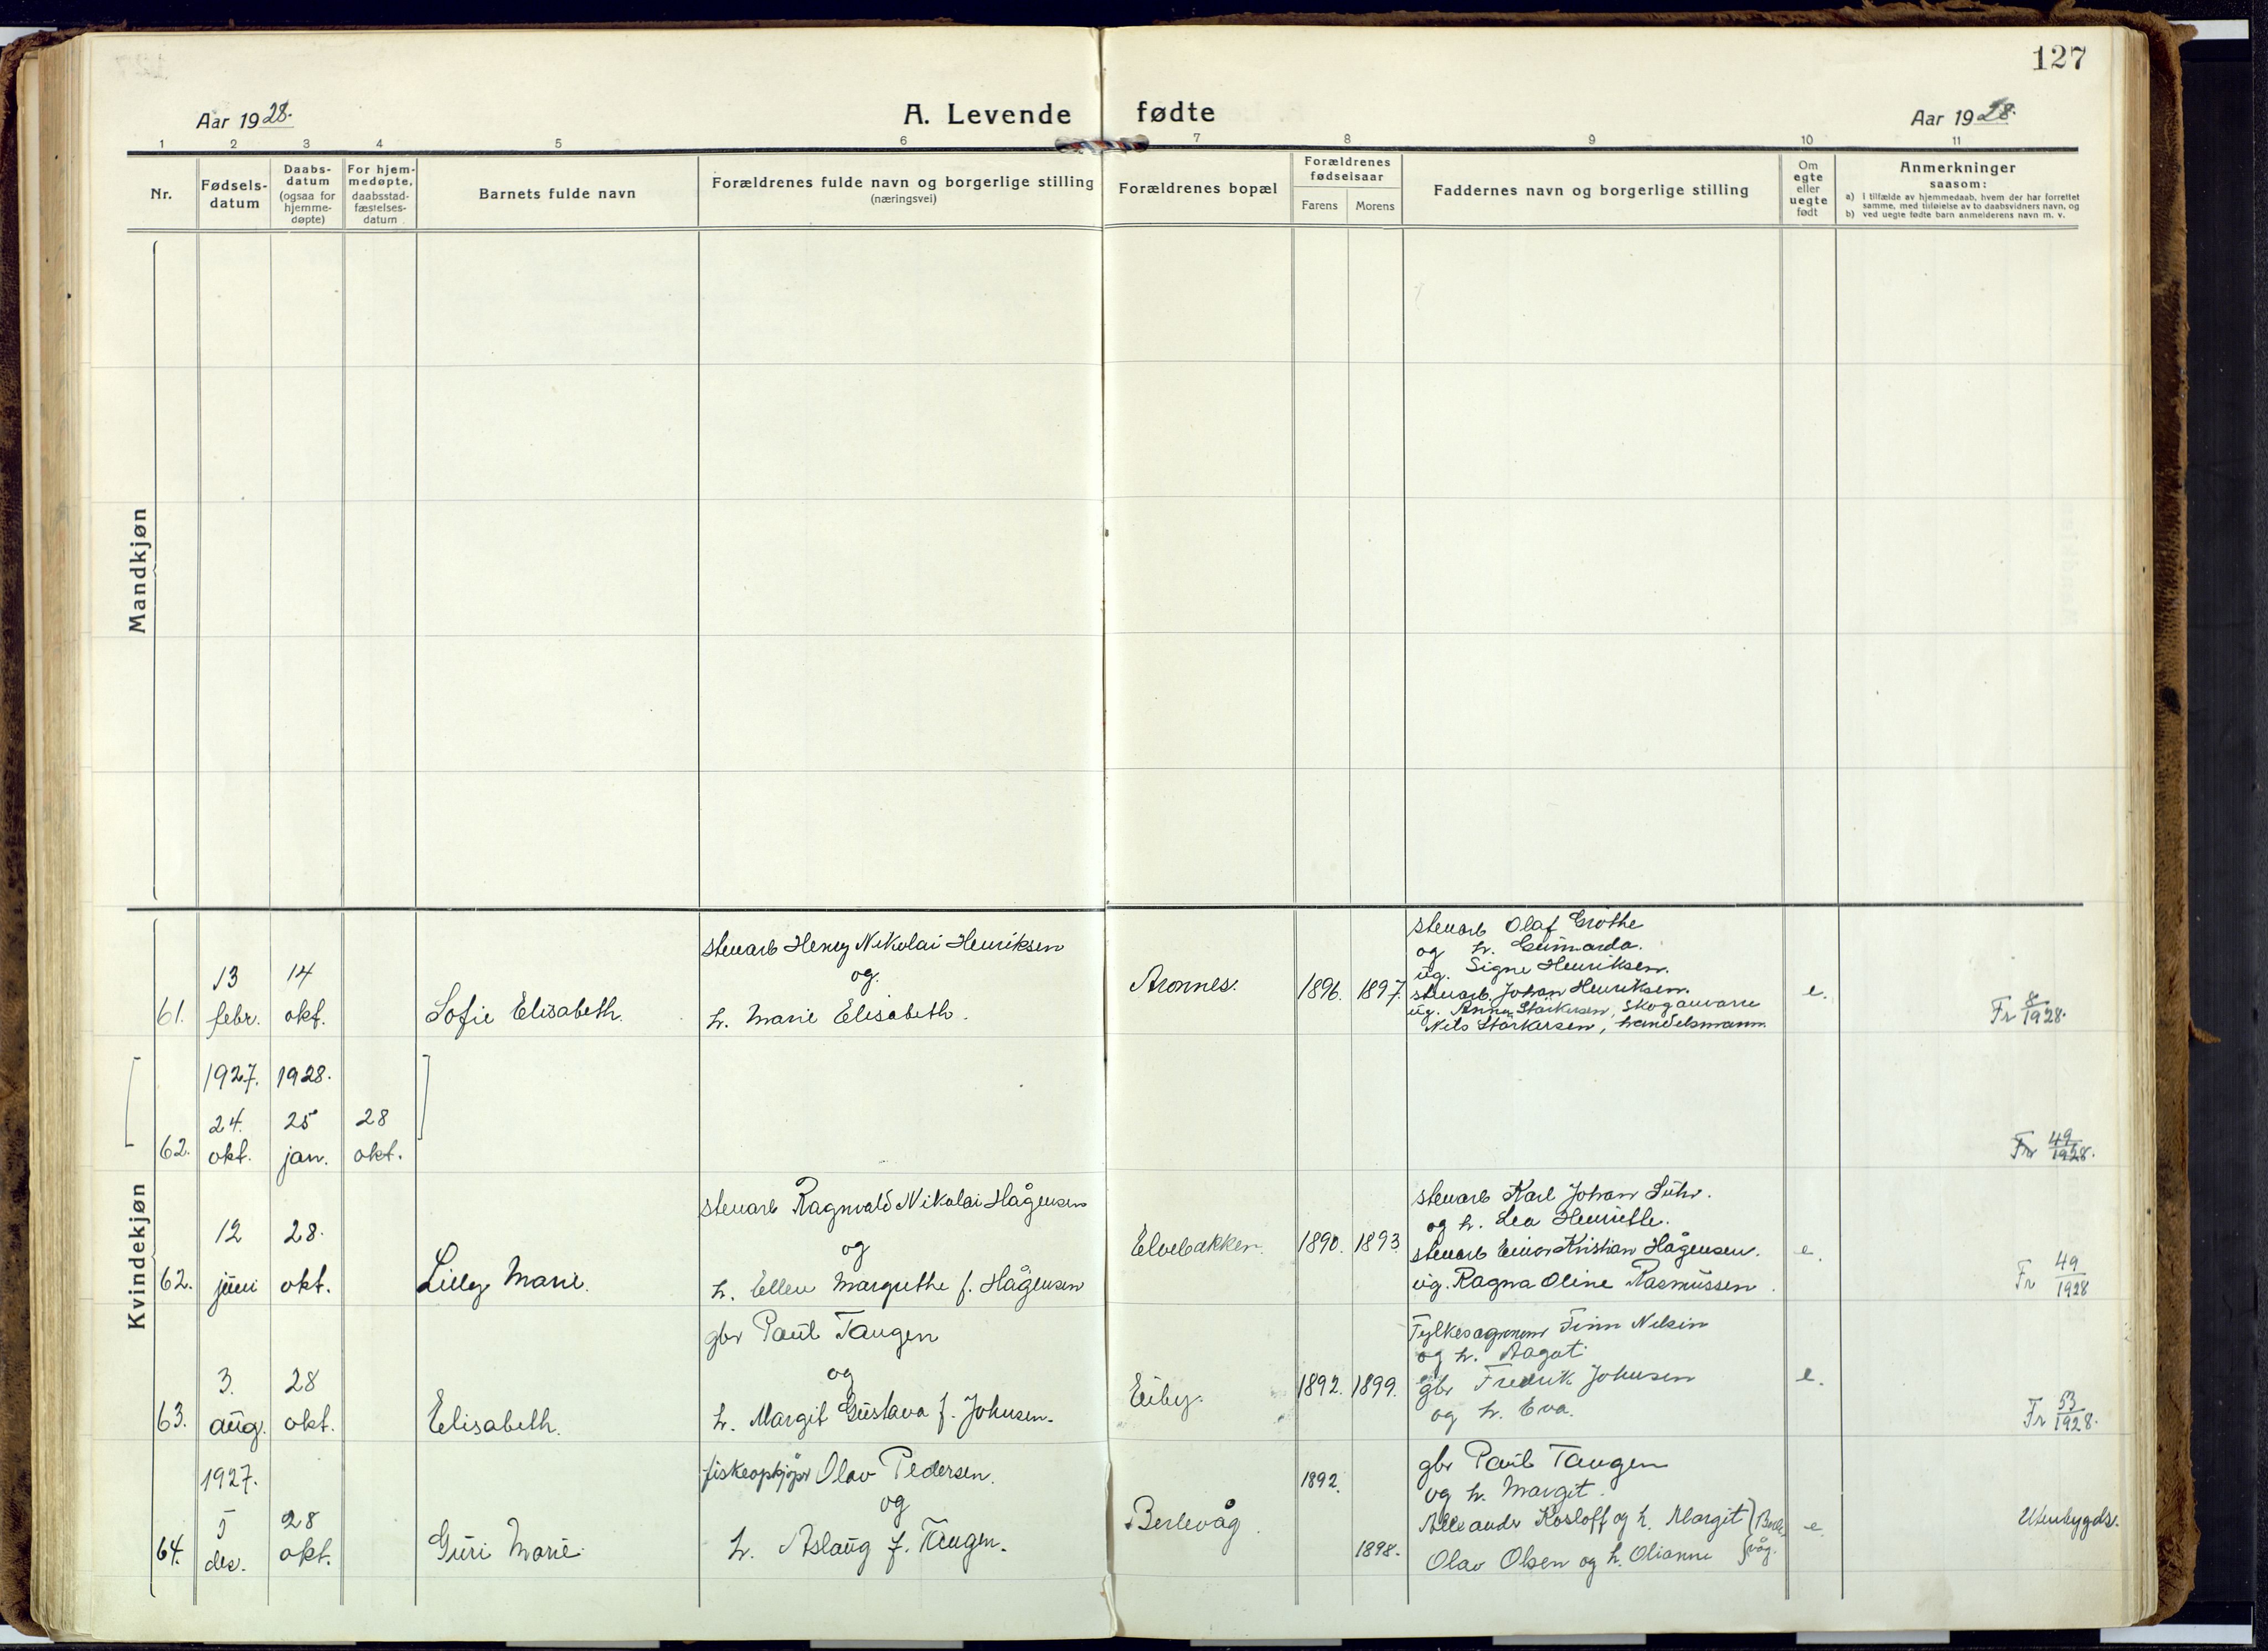 127
Aar 1928.
A. Levende fødte
Aar 1928.
1 2 3 4 5 6 7 8 9 10 11
Nr.
Fødsels-
datum
Daabs-
datum
(ogsaa for
hjemme-
døpte)
For hjem-
medøpte,
daabsstad-
fæstelses-
datum
Barnets fulde navn
Forældrenes fulde navn og borgerlige stilling
(næringsvei)
Forældrenes bopæl
Forældrenes
fødselsaar
Farens
Morens
Faddernes navn og borgerlige stilling
Om
egte
eller
uegte
født
Anmerkninger
saasom:
a) i tilfælde av hjemmedaab, hvem der har forrettet
samme, med tilføielse av to daabsvidners navn, og
b) ved uegte fødte barn anmelderens navn m. v.
Mandkjøn
Kvindekjøn
61.
13
febr.
14
okt.
Sofie Elisabeth.
stenarb Henry Nikolai Henriksen
og
h. Marie Elisabeth.
Aronnes.
1896.
1897.
stenarb Olaf Grothe
og h. Gunnarda.
ug. Signe Henriksen.
stenarb. Johan Henriksen.
ug. Anna Størkersen, Skoganvarre
Nils Størkersen, handelsmann
e.
Fr 8/1928.
62.
1927.
24.
okt.
1928.
25
jan.
28
okt.
Fr 49/1928.
62.
12
juni
28.
okt.
Lilly Marie.
stenarb Ragnvald Nikolai Hågensen
og
h. Ellen Margrethe f. Hågensen
Elvebakken.
1890.
1893.
stenarb Karl Johan Suhr.
og h. Lea Henriette.
stenarb Einar Kristian Hågensen.
ug. Ragna Oline Rasmussen.
e.
Fr 49/1928
63.
3.
aug.
28
okt.
Elisabeth.
gbr Paul Tangen
og
h. Margit Gustava f. Johnsen.
Eiby.
1892.
1899.
Fylkesagronom Finn Nelsin
og h. Aagot
gbr Fredrik Johnsen
og h. Eva.
e.
Fr 53/1928.
64.
1927.
5
des.
28
okt.
Guri Marie.
fiskeopkjøper Olav Pedersen.
og
h. Aslaug f. Tangen.
Berlevåg.
1892.
1898.
gbr Paul Tangen
og h. Margit.
Alleander Kosloff og h. Margit } Berle-
Olav Olsen og h. Olianne } våg.
e.
Utenbygds.